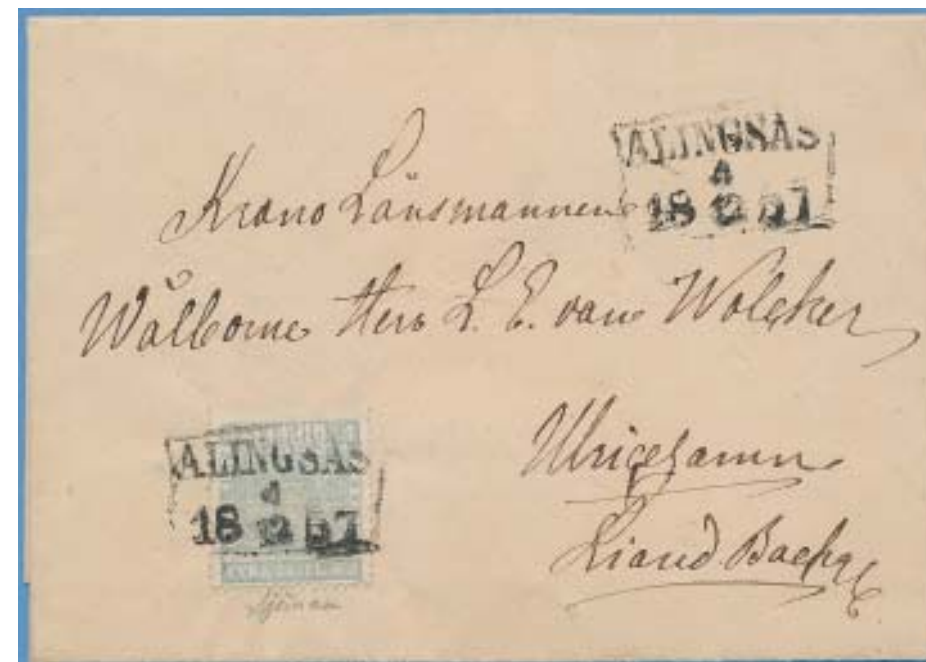 ALINGSÅS
4
18 12 57
Krono Länsmannen
Wälborne Herr L. E. von Wolcker
Ulricehamn
ALINGSÅS
4
18 12 57